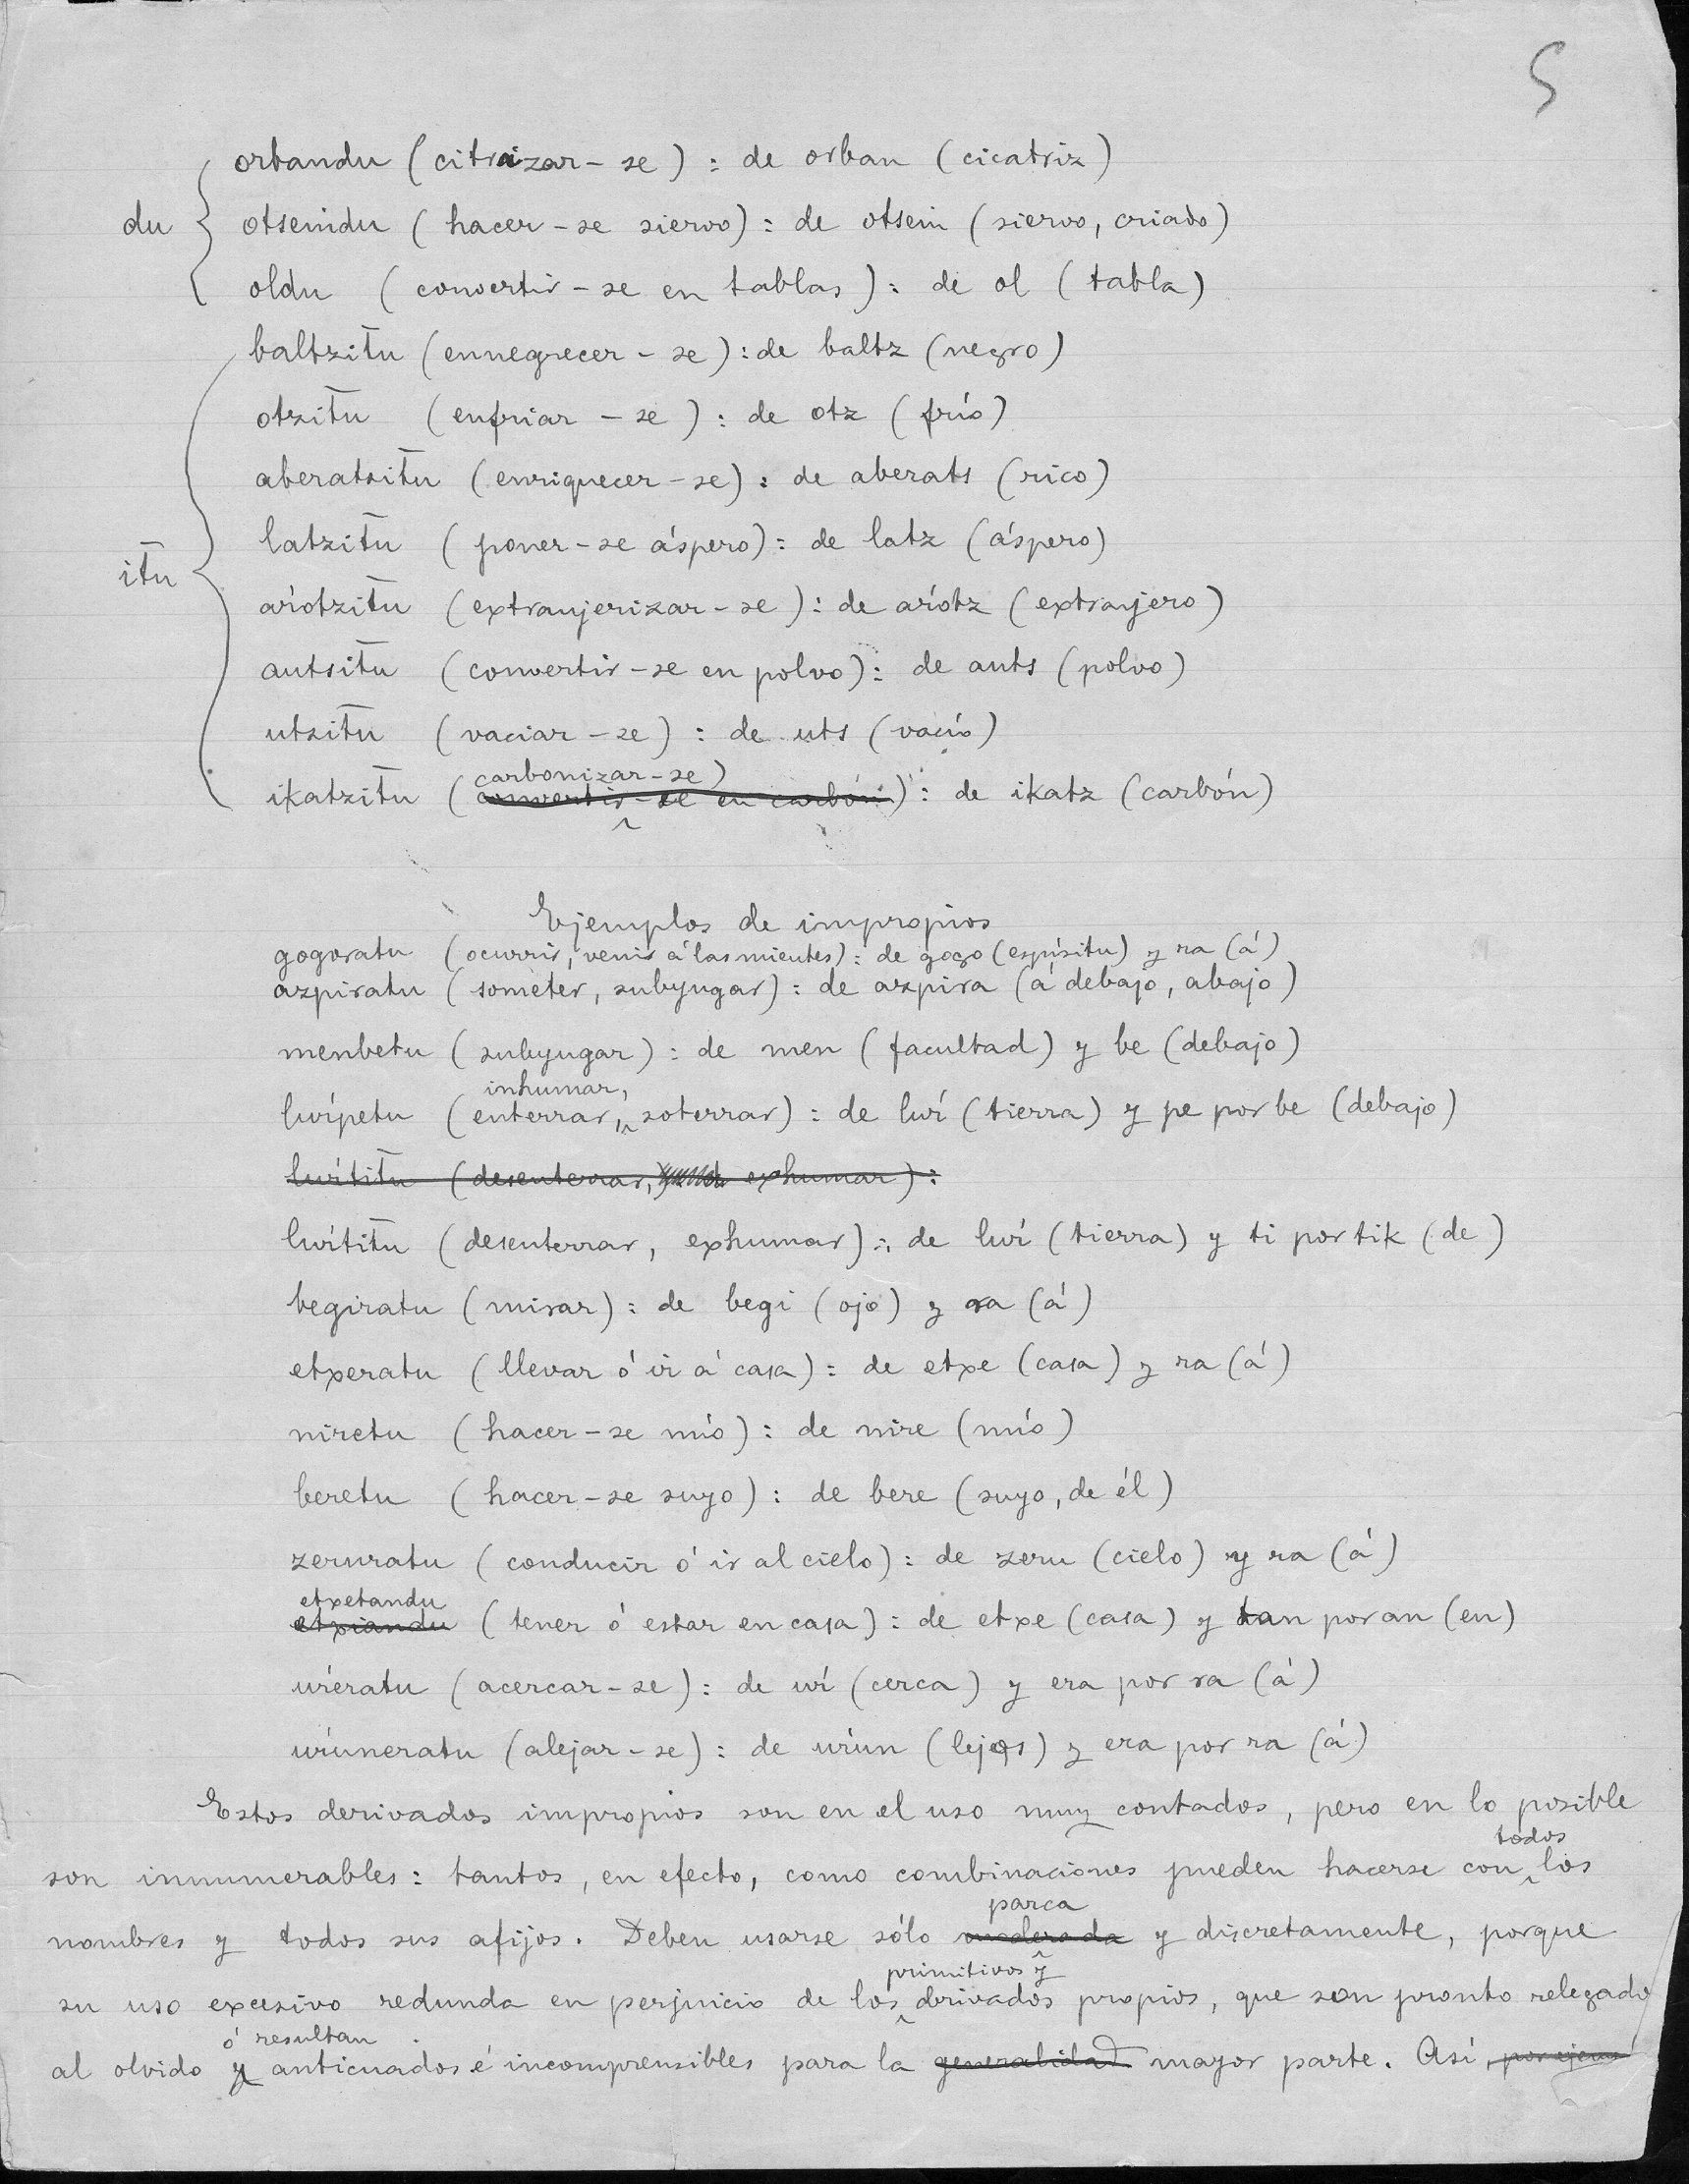 5
orbandu (citraizar-se) : de orban (cicatriz)
du { otsenidu (hacer-se siervo) : de otsein (siervo, criado)
oldu (convertir-se en tablas) : de ol (tabla)
baltzit̄u (ennegrecer-se) : de baltz (negro)
otzit̄u (enfriar-se) : de otz (frío)
aberatsit̄u (enriquecer-se) : de aberats (rico)
latzit̄u (poner-se áspero) : de latz (áspero)
it̄u { aŕotzit̄u (extranjerizar-se) : de aŕotz (extranjero)
autsit̄u (convertir-se en polvo) : de auts (polvo)
utsit̄u (vaciar-se) : de uts (vacío)
carbonizar-se)
ikatzit̄u (convertir-se en carbón) : de ikatz (carbón)
Ejemplos de impropios
gogoratu (ocurrir, venir á las mientes) : de gogo (espíritu) y ra (á)
azpiratu (someter, subyugar) : de azpira (á debajo, abajo)
menbetu (subyugar) : de men (facultad) y be (debajo)
inhumar,
luŕpetu (enterrar, soterrar) : de luŕ (tierra) y pe por be (debajo)
luŕtit̄u (desenterrar, exhumar) :
luŕtit̄u (desenterrar, exhumar) : de luŕ (tierra) y ti por tik (de)
begiratu (mirar) : de begi (ojo) y ra (á)
etxeratu (llevar ó ir á casa) : de etxe (casa) y ra (á)
niretu (hacer-se mío) : de nire (mío)
beretu (hacer-se suyo) : de bere (suyo, de él)
zeruratu (conducir ó ir al cielo) : de zeru (cielo) y ra (á)
etxetandu
etxiandu (tener ó estar en casa) : de etxe (casa) y tan por an (en)
uŕeratu (acercar-se) : de uŕ (cerca) y era por ra (á)
uŕuneratu (alejar-se) : de uŕun (lejos) y era por ra (á)
Estos derivados impropios son en el uso muy contados, pero en lo posible
todos
son innumerables : tantos, en efecto, como combinaciones pueden hacerse con los
parca
nombres y todos sus afijos. Deben usarse sólo moderada y discretamente, porque
primitivos y
su uso excesivo redunda en perjuicio de los derivados propios, que son pronto relegado
ó resultan
al olvido y anticuados é incomprensibles para la generalidad mayor parte. Así, por ejem